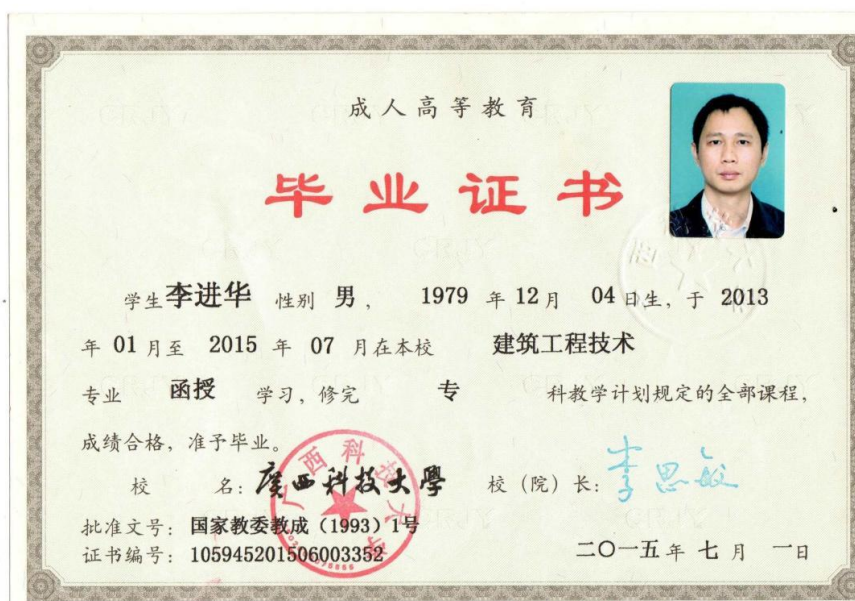 成人高等教育
毕业证书
学生李进华 性别 男， 1979 年 12 月 04 日生，于 2013
年 01 月至 2015 年 07 月在本校 建筑工程技术
专业 函授 学习，修完 专 科教学计划规定的全部课程，
成绩合格，准予毕业。
校 名：廣西科技大學 校（院）长：李思敏
广西科技大学
批准文号：国家教委教成（1993）1号
证书编号：105945201506003352
二〇一五年 七 月 一日